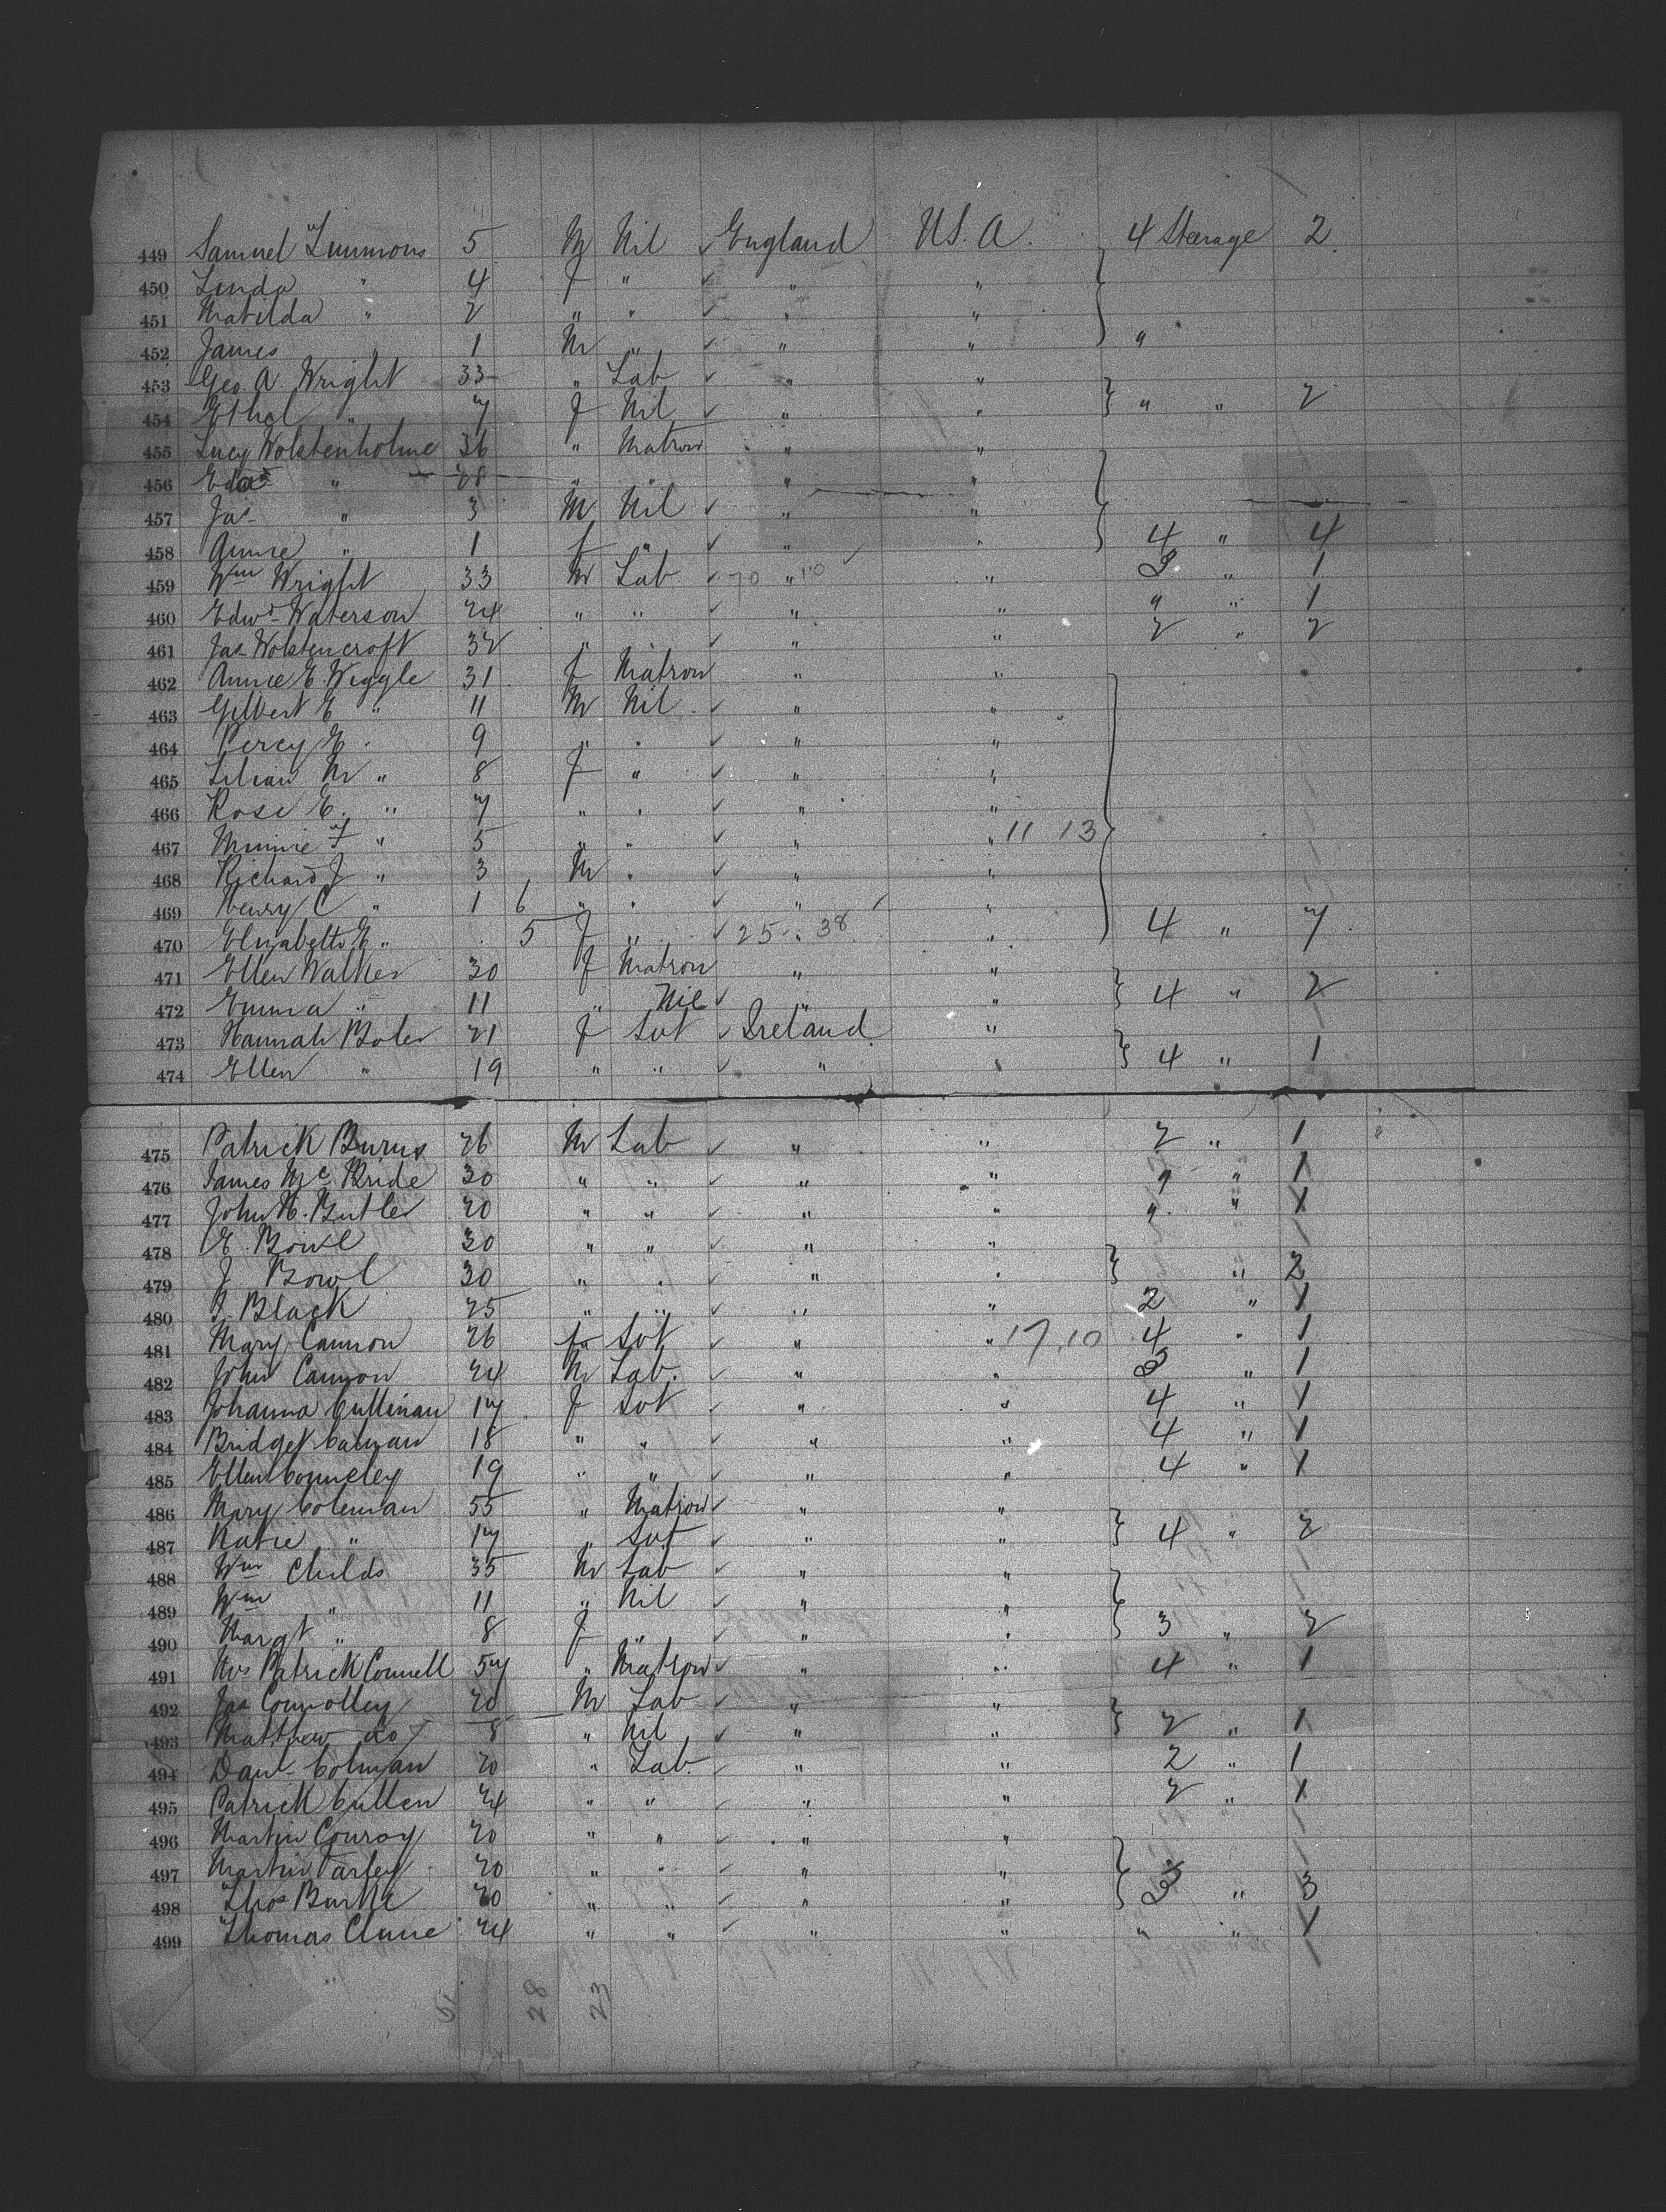 449 Samuel Timmons 5 M Nil ✓ England U.S.A. 4 Steerage 2
450 Linda " 4 F " ✓ " "
451 Matilda " 2 " " ✓ " "
452 James 1 M " ✓ " " "
453 Geo. A. Wright 33 " Lab ✓ " "
454 Ethel " 7 F Nil ✓ " " " " 2
455 Lucy Wolstenholme 36 " Matron " "
456 " 28 " " " "
457 Jas " 3 M Nil ✓ " "
458 Annie " 1 f " ✓ " " 4 " 4
459 Wm Wright 33 M Lab ✓ 70 " 10 " 2 " 1
460 Edwd Waterson 24 " " ✓ " " " " 1
461 Jas Wolstencroft 32 " ✓ " " 2 " 2
462 Annie E. Wiggle 31 F Matron " "
463 Gilbert E " 11 M Nil ✓ " "
464 Percy E. 9 " " ✓ " "
465 Lilian M " 8 F " ✓ " "
466 Rose E. " 7 " " ✓ " "
467 Minnie F " 5 " " ✓ " " 11 13
468 Richard J " 3 M " ✓ " "
469 Henry C " 1 6 " " ✓ " "
470 Elizabeth E " 5 F " ✓ 25 " 38 " 4 " 7
471 Ellen Walker 30 F Matron " "
472 Emma " 11 " Nil ✓ " " 4 " 2
473 Hannah Boler 21 F Svt ✓ Ireland "
474 Ellen " 19 " " ✓ " " 4 " 1
475 Patrick Burns 26 M Lab ✓ " " 2 " 1
476 James McBride 30 " " ✓ " " " " 1
477 John H. Butler 20 " " ✓ " " " " 1
478 E. Bowl 30 " " ✓ " "
479 J. Bowl 30 " " ✓ " " " 2
480 Black 25 " " ✓ " " 2 " 1
481 Mary Cannon 26 f Svt ✓ " " 17 10 4 " 1
482 John Cannon 24 M Lab. ✓ " " 2 " 1
483 Johanna Cullinan 17 F Svt ✓ " " 4 " 1
484 Bridget 18 " " ✓ " " 4 " 1
485 Ellen Conneley 19 " " ✓ " " 4 " 1
486 Mary Coleman 55 " Matron ✓ " "
487 Katie " 17 " Svt ✓ " " 4 " 2
488 Wm Childs 35 M Lab ✓ " "
489 Wm " 11 " Nil ✓ " "
490 Margt " 8 F " ✓ " " 3 " 2
491 Mrs Patrick Connell 57 " Matron ✓ " " 4 " 1
492 Jas Connolley 20 M Lab ✓ " "
493 Matthew do 8 " Nil ✓ " " 2 " 1
494 Danl Colman 20 " Lab. ✓ " " 2 " 1
495 Patrick Cullen 24 " " ✓ " " 2 " 1
496 Martin Conroy 20 " " ✓ " "
497 Martin Varley 20 " " ✓ " "
498 Thos Burke 20 " " ✓ " " " 3
499 Thomas Clune 24 " " ✓ " " " " 1
28 23